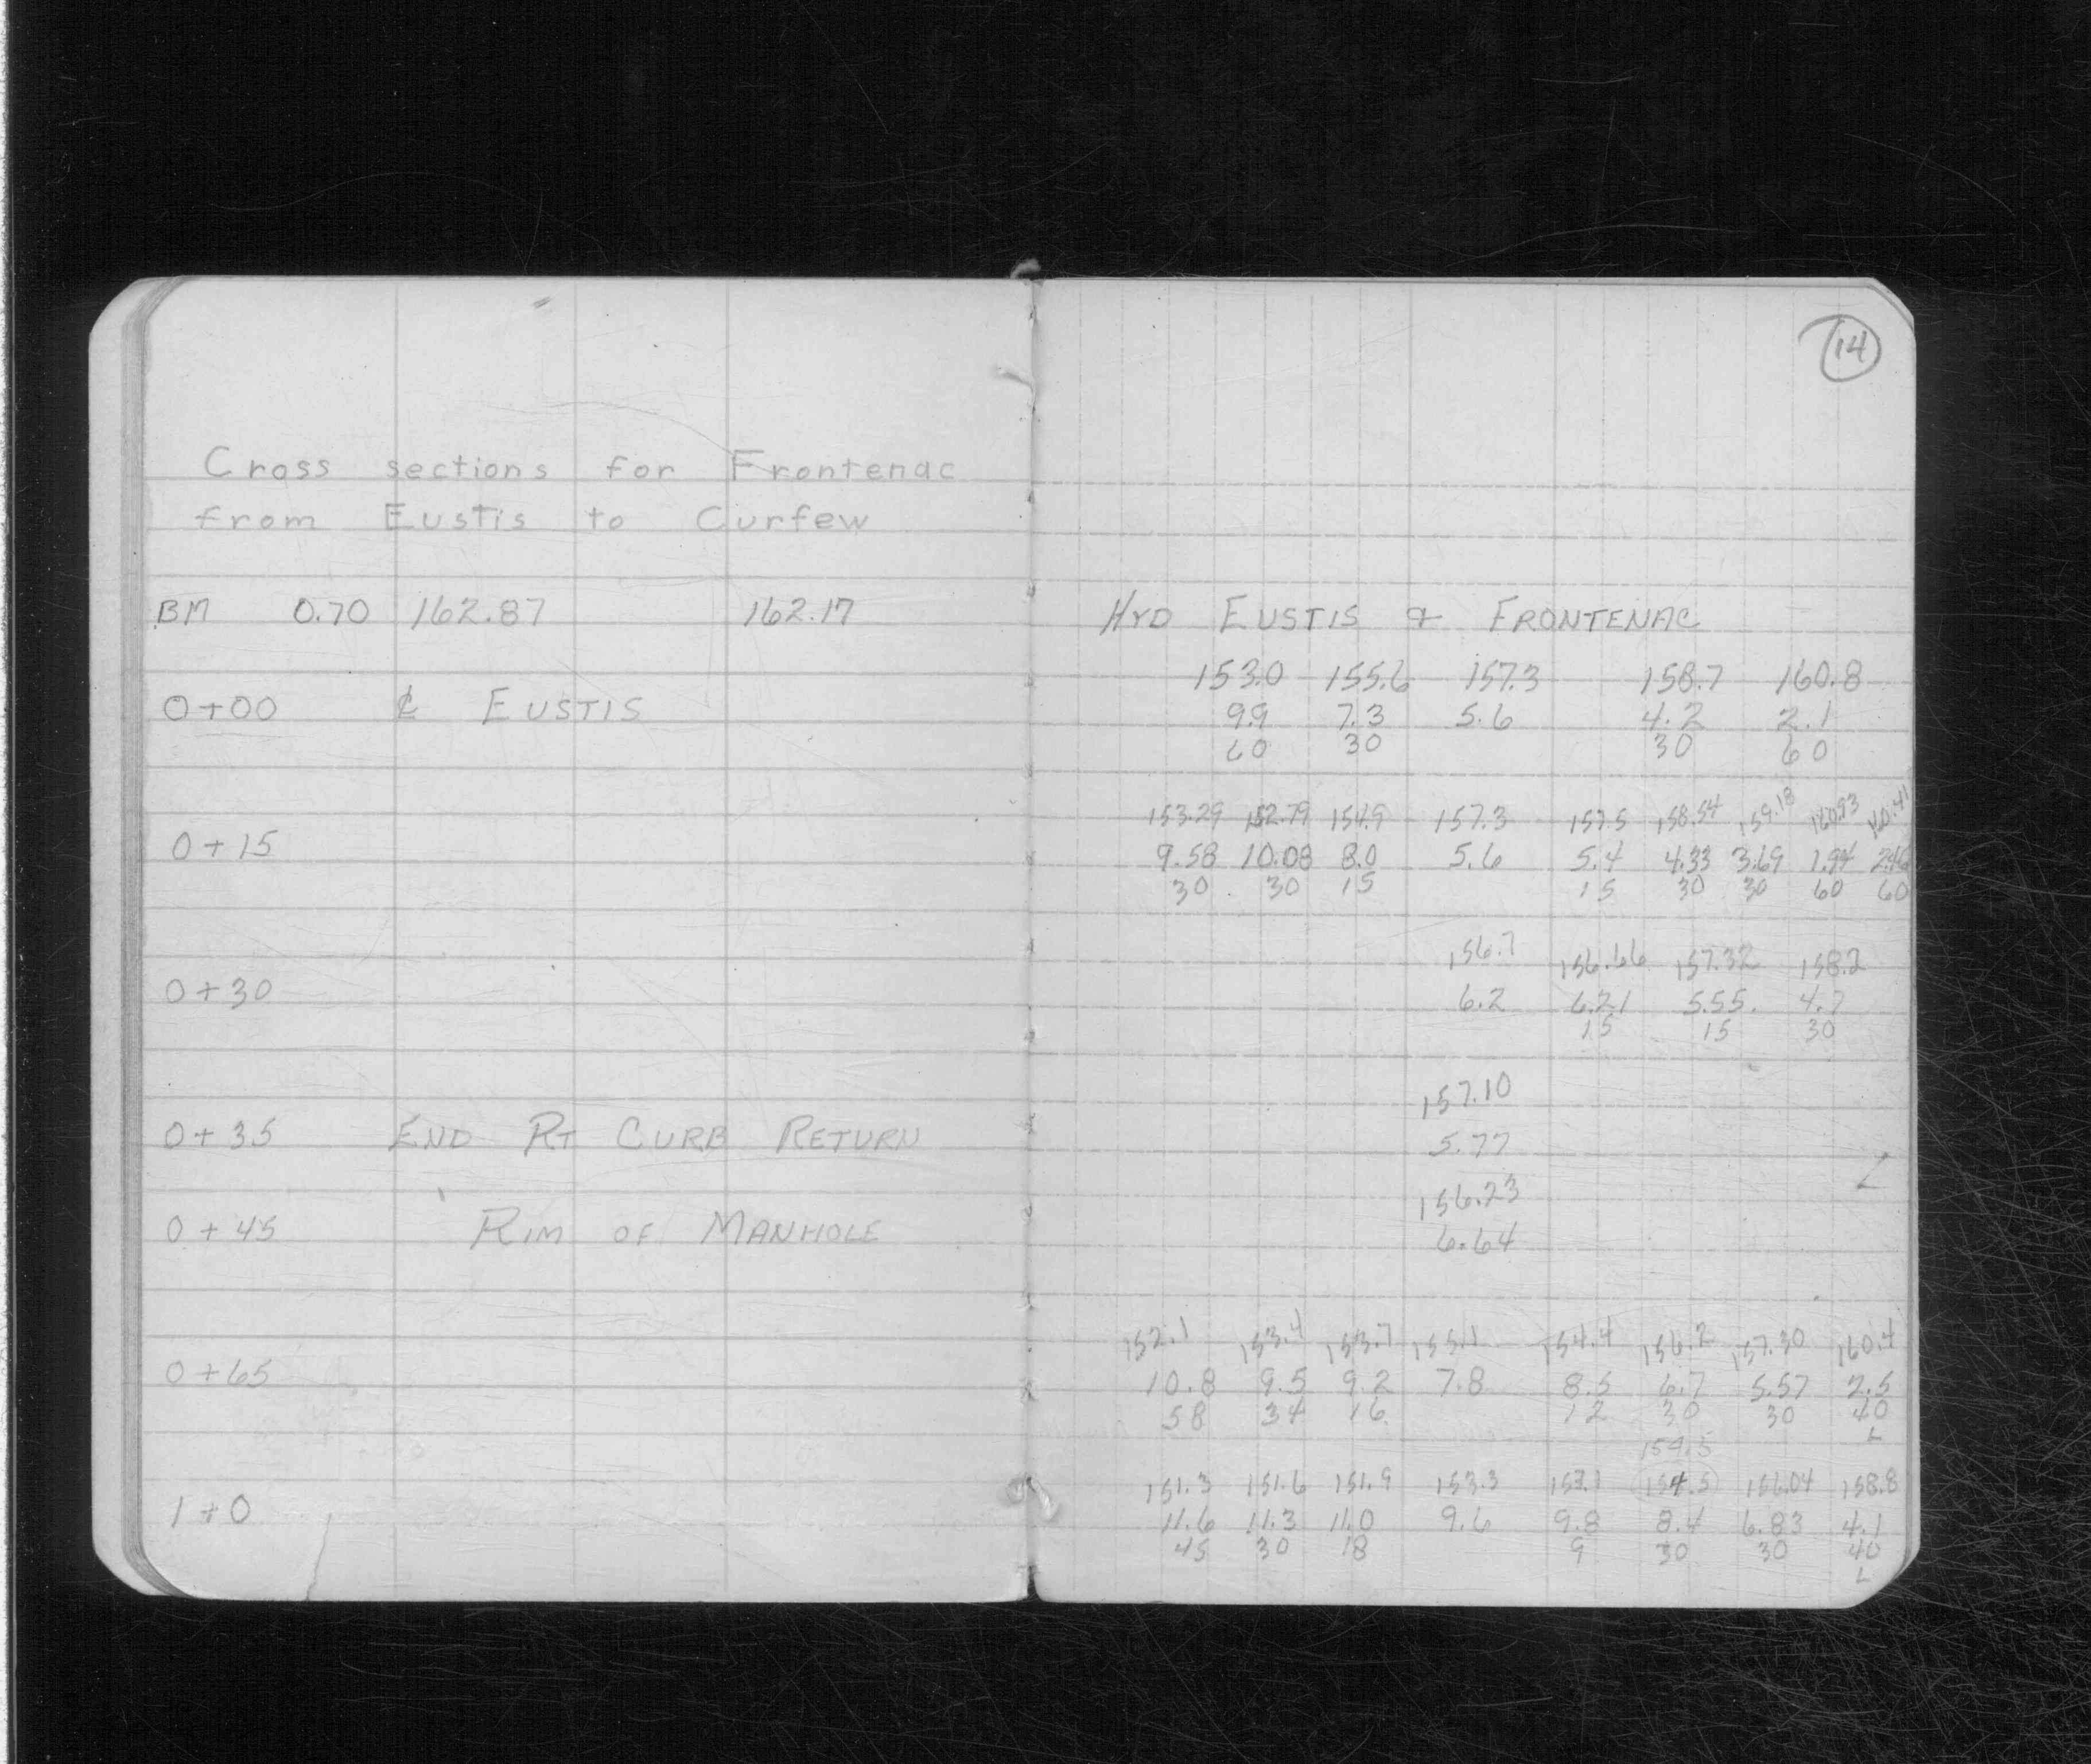 14
Cross sections for Frontenac
from Eustis to Curfew
BM 0.70 162.87 162.17 HYD EUSTIS & FRONTENAC
153.0 155.6 157.3 158.7 160.8
0+00 ℄ EUSTIS 9.9 7.3 5.6 4.2 2.1
60 30 30 60
153.29 152.79 154.9 157.3 157.5 158.54 159.18 160.93 160.41
0+15 9.58 10.08 8.0 5.6 5.4 4.33 3.69 1.94 2.46
30 30 15 15 30 30 60 60
156.7 156.66 157.32 158.2
0+30 6.2 6.21 5.55 4.7
15 15 30
157.10
0+35 END RT CURB RETURN 5.77
L
156.23
0+45 RIM OF MANHOLE 6.64
152.1 153.4 153.7 155.1 154.4 156.2 157.30 160.4
0+65 10.8 9.5 9.2 7.8 8.5 6.7 5.57 2.5
58 34 16 12 30 30 40
L
154.5
151.3 151.6 151.9 153.3 153.1 154.5 156.04 158.8
1+0 11.6 11.3 11.0 9.6 9.8 8.4 6.83 4.1
45 30 18 9 30 30 40
L